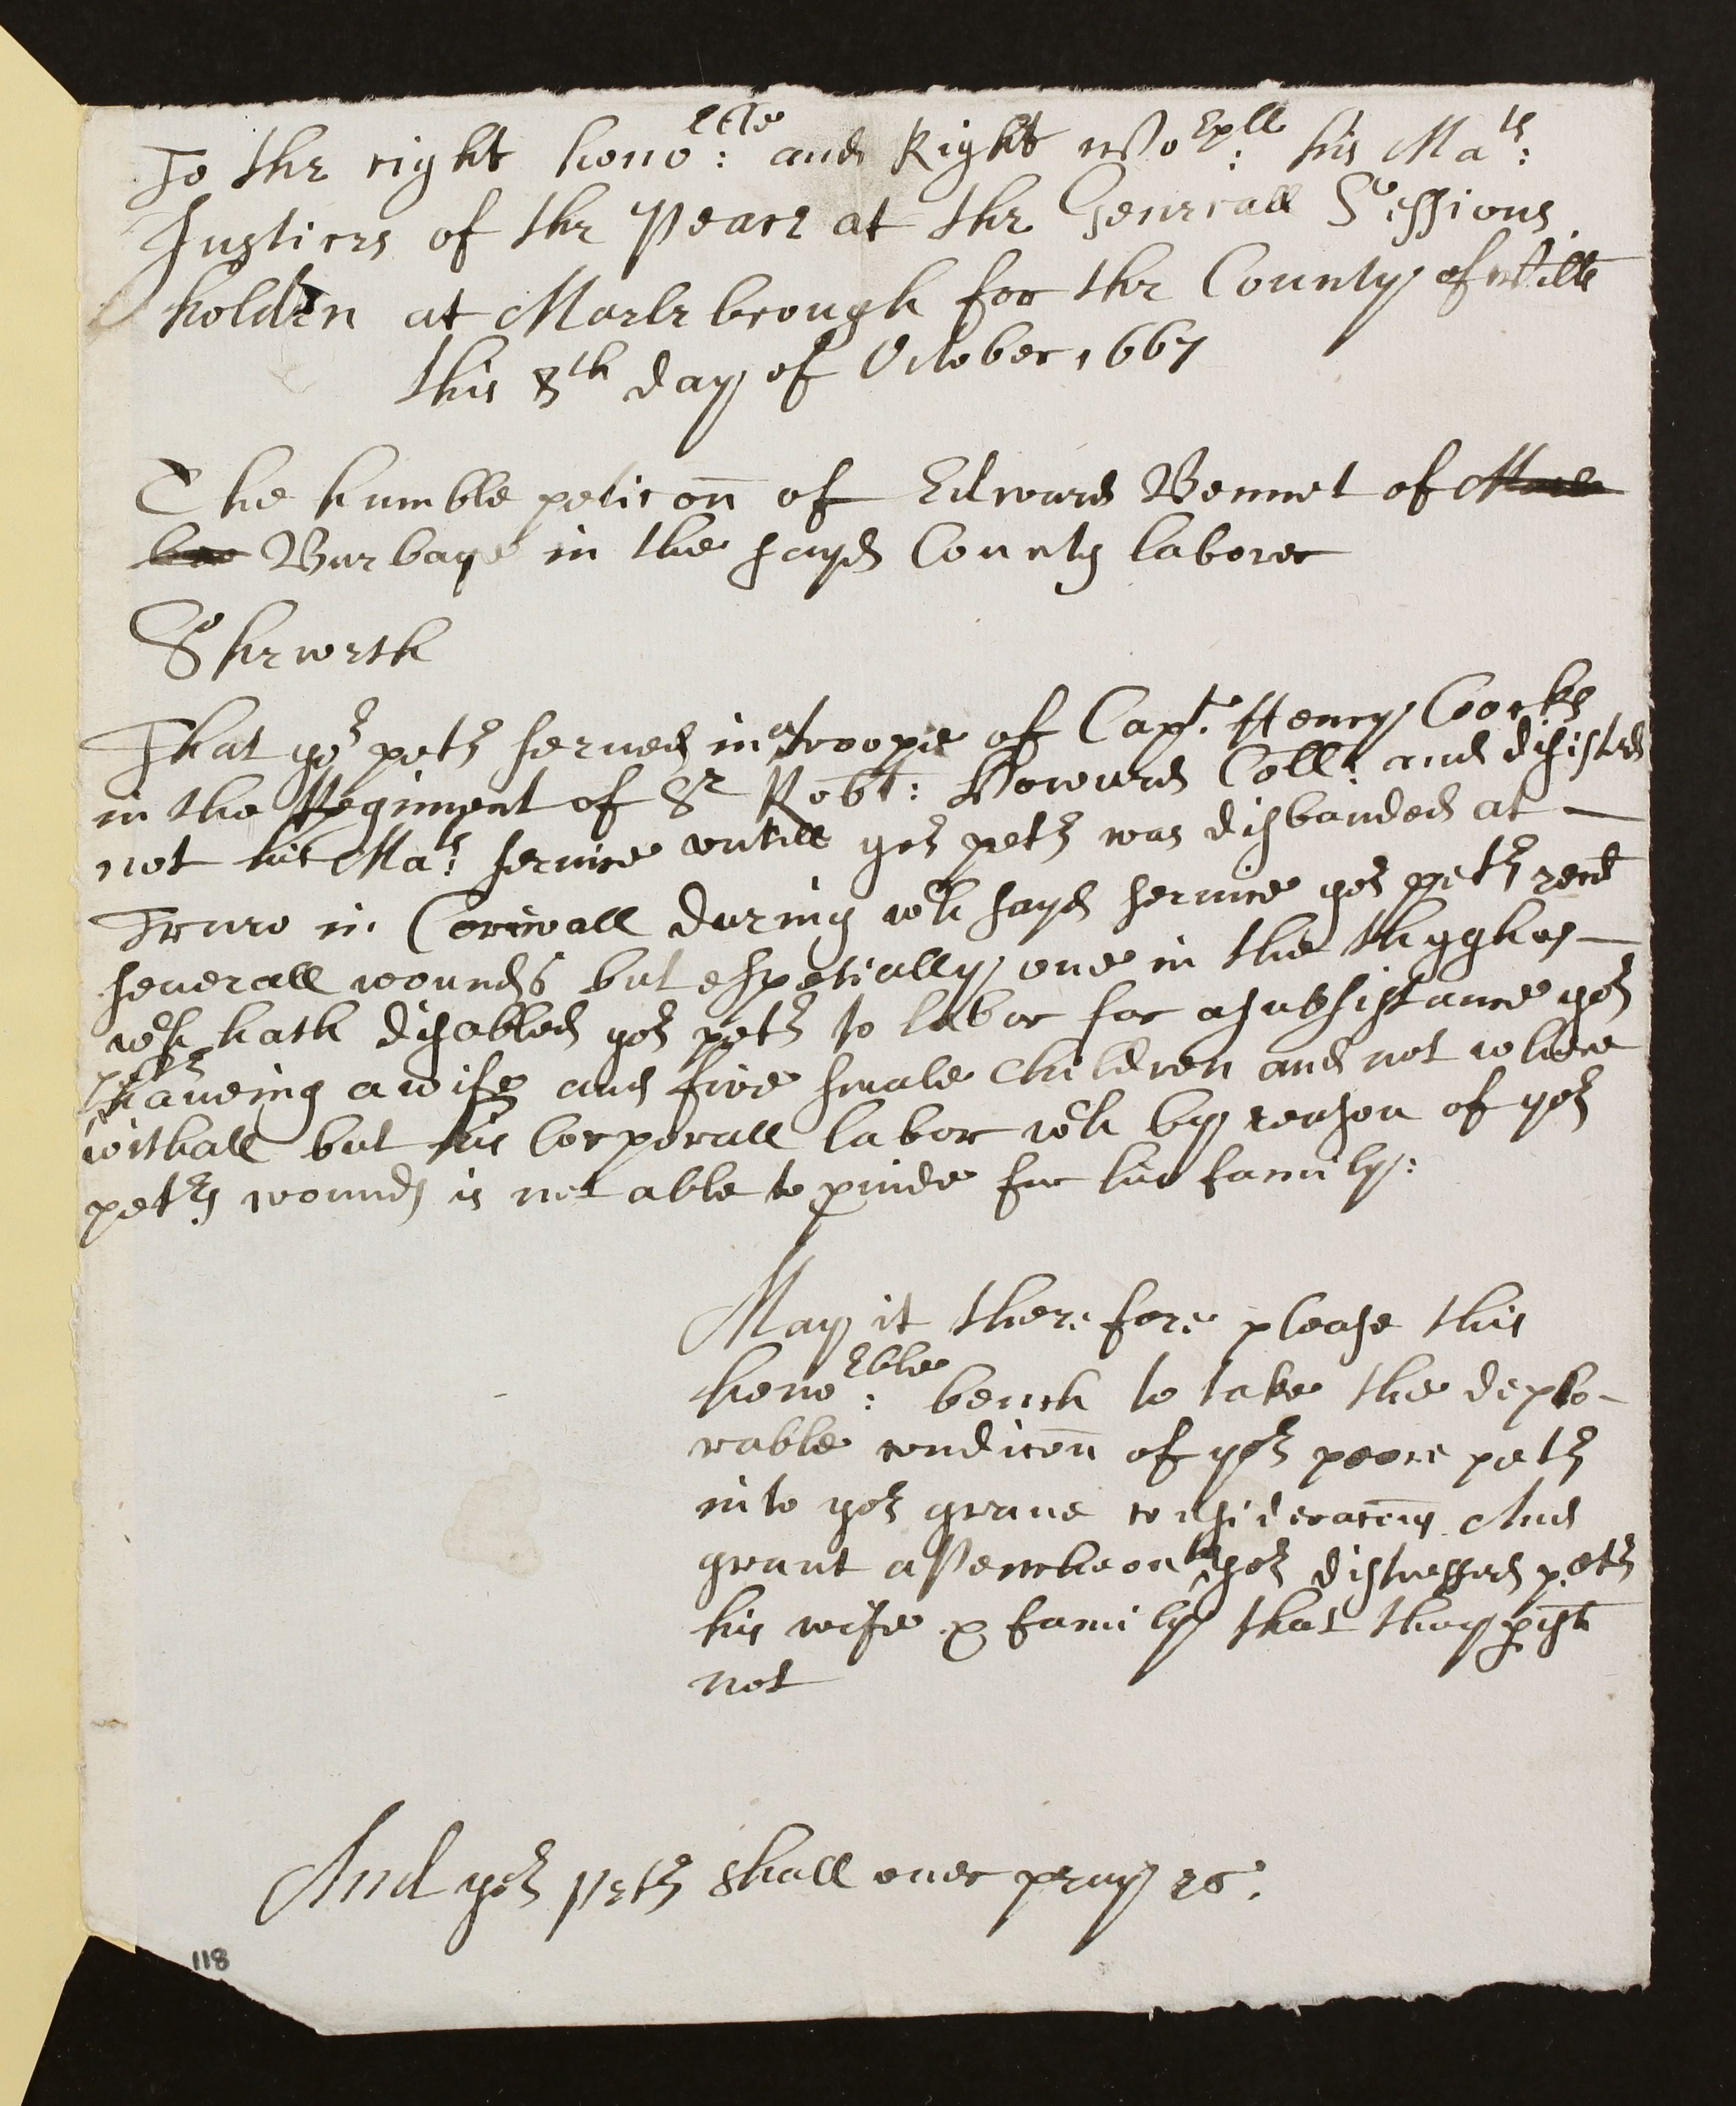 To the right hono:rble and Right Wo:rpll his Ma:ts
Justices of the Peace at the Generall Sessions
holden at Marlebrough for the County of Wilts
this 8th day of October 1667
The humble peticon of Edward Bennet of Marle
bro Burbage in the sayd County laborer
Sheweth
That yor petr served in a troope of Capt. Henry Coocks
in the Regiment of Sr Robt: Howard Coll: and desisted
not his Mats: service untill yor petr was disbanded at
Truro in Cornwall during wch sayd service yor petr recd
severall wounds but espetially one in the thyghes
wch hath disabled yor petr to labor for a subsistance yor
petr haveing a wife and five smale Children and not where
withall but his Corporall labor wch by reason of yor
petrs wounds is not able to pvide for his family:
May it therefore please this
hono:rble bench to take the deplo-
rable condicon of yor poore petr
into yor grave consideracons And
grant a Pencheon to yor distressed petr
his wife & family that they pish
not
And yor Petr shall ever pray &c.
118